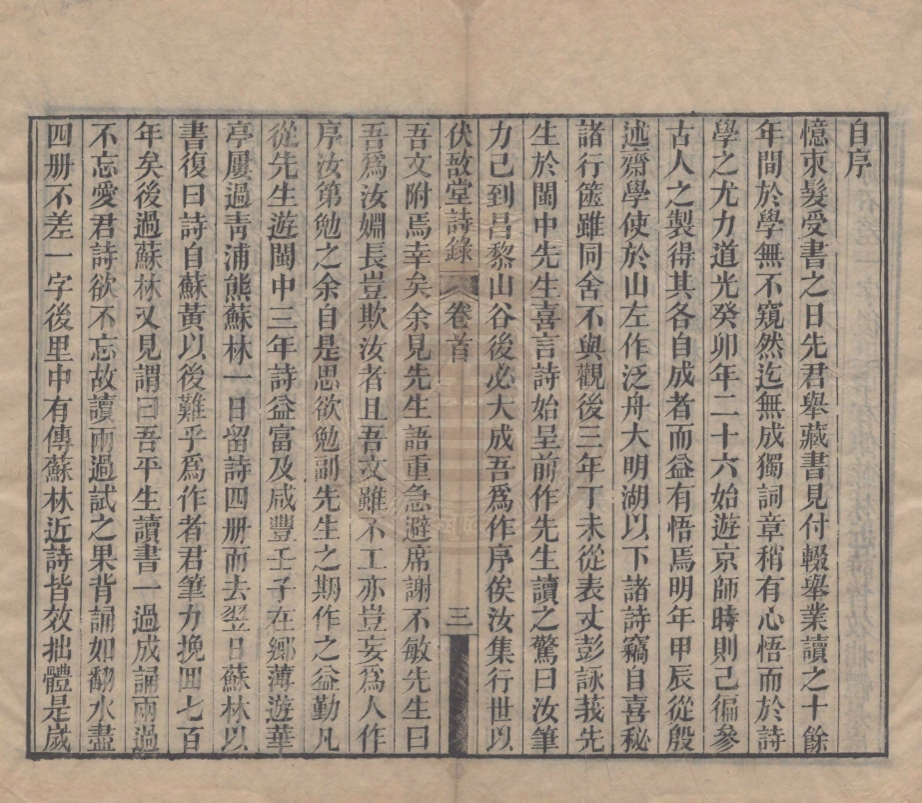 自序
憶束髮受書之日先君舉藏書見付輟舉業讀之十餘
年間於學無不窺然迄無成獨詞章稍有心悟而於詩
學之尤力道光癸卯年二十六始遊京師時則已徧參
古人之製得其各自成者而益有悟焉明年甲辰從殷
述齋學使於山左作泛舟大明湖以下諸詩竊自喜秘
諸行篋雖同舍不與觀後三年丁未從表丈彭詠莪先
生於閩中先生喜言詩始呈前作先生讀之驚曰汝筆
力已到昌黎山谷後必大成吾爲作序俟汝集行世以
伏敔堂詩錄 卷首 三
吾文附焉幸矣余見先生語重急避席謝不敏先生曰
吾爲汝婣長豈欺汝者且吾文雖不工亦豈妄爲人作
序汝第勉之余自是思欲勉副先生之期作之益勤凡
從先生遊閩中三年詩益富及咸豐壬子在鄉薄遊華
亭屢過靑浦熊蘇林一日留詩四册而去翌日蘇林以
書復曰詩自蘇黃以後難乎爲作者君筆力挽回七百
年矣後過蘇林又見謂曰吾平生讀書一過成誦兩過
不忘愛君詩欲不忘故讀兩過試之果背誦如翻水盡
四册不差一字後里中有傳蘇林近詩皆效拙體是歲